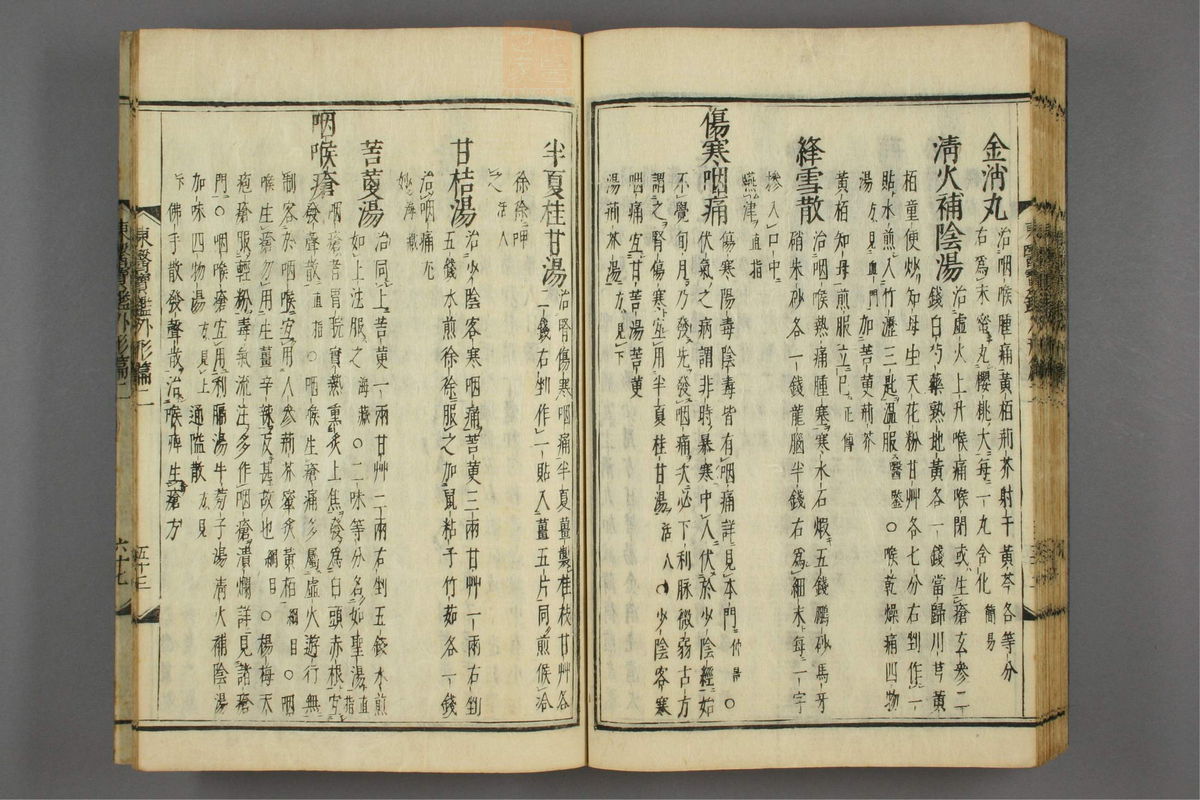 金消丸治咽喉腫痛黃栢荊芥射干黃芩各等分
右爲末蜜丸櫻桃大每一丸含化簡易
淸火補陰湯治虛火上升喉痛喉閉或生瘡玄參二
錢白芍藥熟地黃各一錢當歸川芎黃
栢童便炒知母生天花粉甘艸各七分右剉作一
貼水煎入竹瀝三匙溫服醫鑒〇喉乾燥痛四物
湯方見血門加苦荊芥
黃栢知母煎服立已正傳
絳雪散治咽喉熱痛腫塞寒水石煆五錢鵬砂馬牙
硝朱砂各一錢龍腦半錢右爲細末每一字
摻入口中
嚥津直指
傷寒咽痛傷寒陽毒陰毒皆有咽痛詳見本門〇
伏氣之病謂非時暴寒中人伏於少陰經始
不覺旬月乃發先發咽痛次必下利脉微弱古方
謂之腎傷寒宜用半夏桂甘湯活人〇少陰客寒
咽痛宜甘桔湯
湯荊芥湯方見下
半夏桂甘湯治腎傷寒咽痛半夏薑製桂枝甘艸各
二錢右剉作一貼入薑五片同煎候冷
徐徐呷
之活人
甘桔湯治少陰客寒咽痛苦三兩甘艸一兩右剉
五錢水煎徐徐服之加鼠粘子竹茹各一錢
治咽痛尤
妙海藏
苦湯治同上苦一兩甘艸二兩右剉五錢水煎
如上法服之海藏〇二味等分名如聖湯直指
咽喉瘡咽瘡者胃脘實熱熏灸上焦發爲白頭赤根宜
發聲散直指〇咽喉生瘡痛多屬虛火遊行無
制客於咽喉宜用人參荊芥蜜灸黃栢綱目〇咽
喉生瘡勿用生薑辛辣反甚故也綱目〇楊梅天
疱瘡服輕粉毒氣流注多作咽瘡潰爛詳見諸瘡
門〇咽喉瘡宜用利膈湯牛蒡子湯淸火補陰湯
加味四物湯方見上通隘散方見
下佛手散發聲散治喉痺生瘡方
東醫寶鑑外形篇二
五十三
六十七